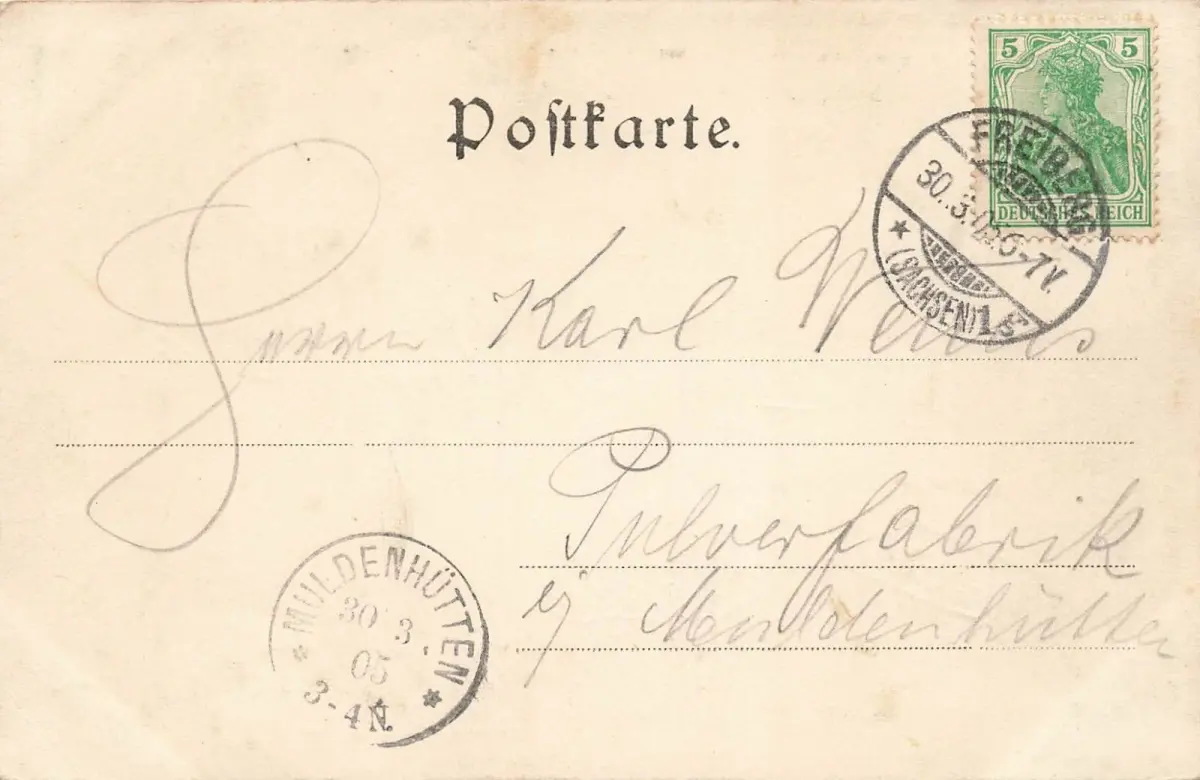 Postkarte.
5 5
DEUTSCHES REICH
FREIBERG
30.3.05.6-7V.
* (SACHSEN) 1 s *
Herrn Karl
Pulverfabrik
Muldenhütte
* MULDENHÜTTEN *
30 3.
05
3-4N.